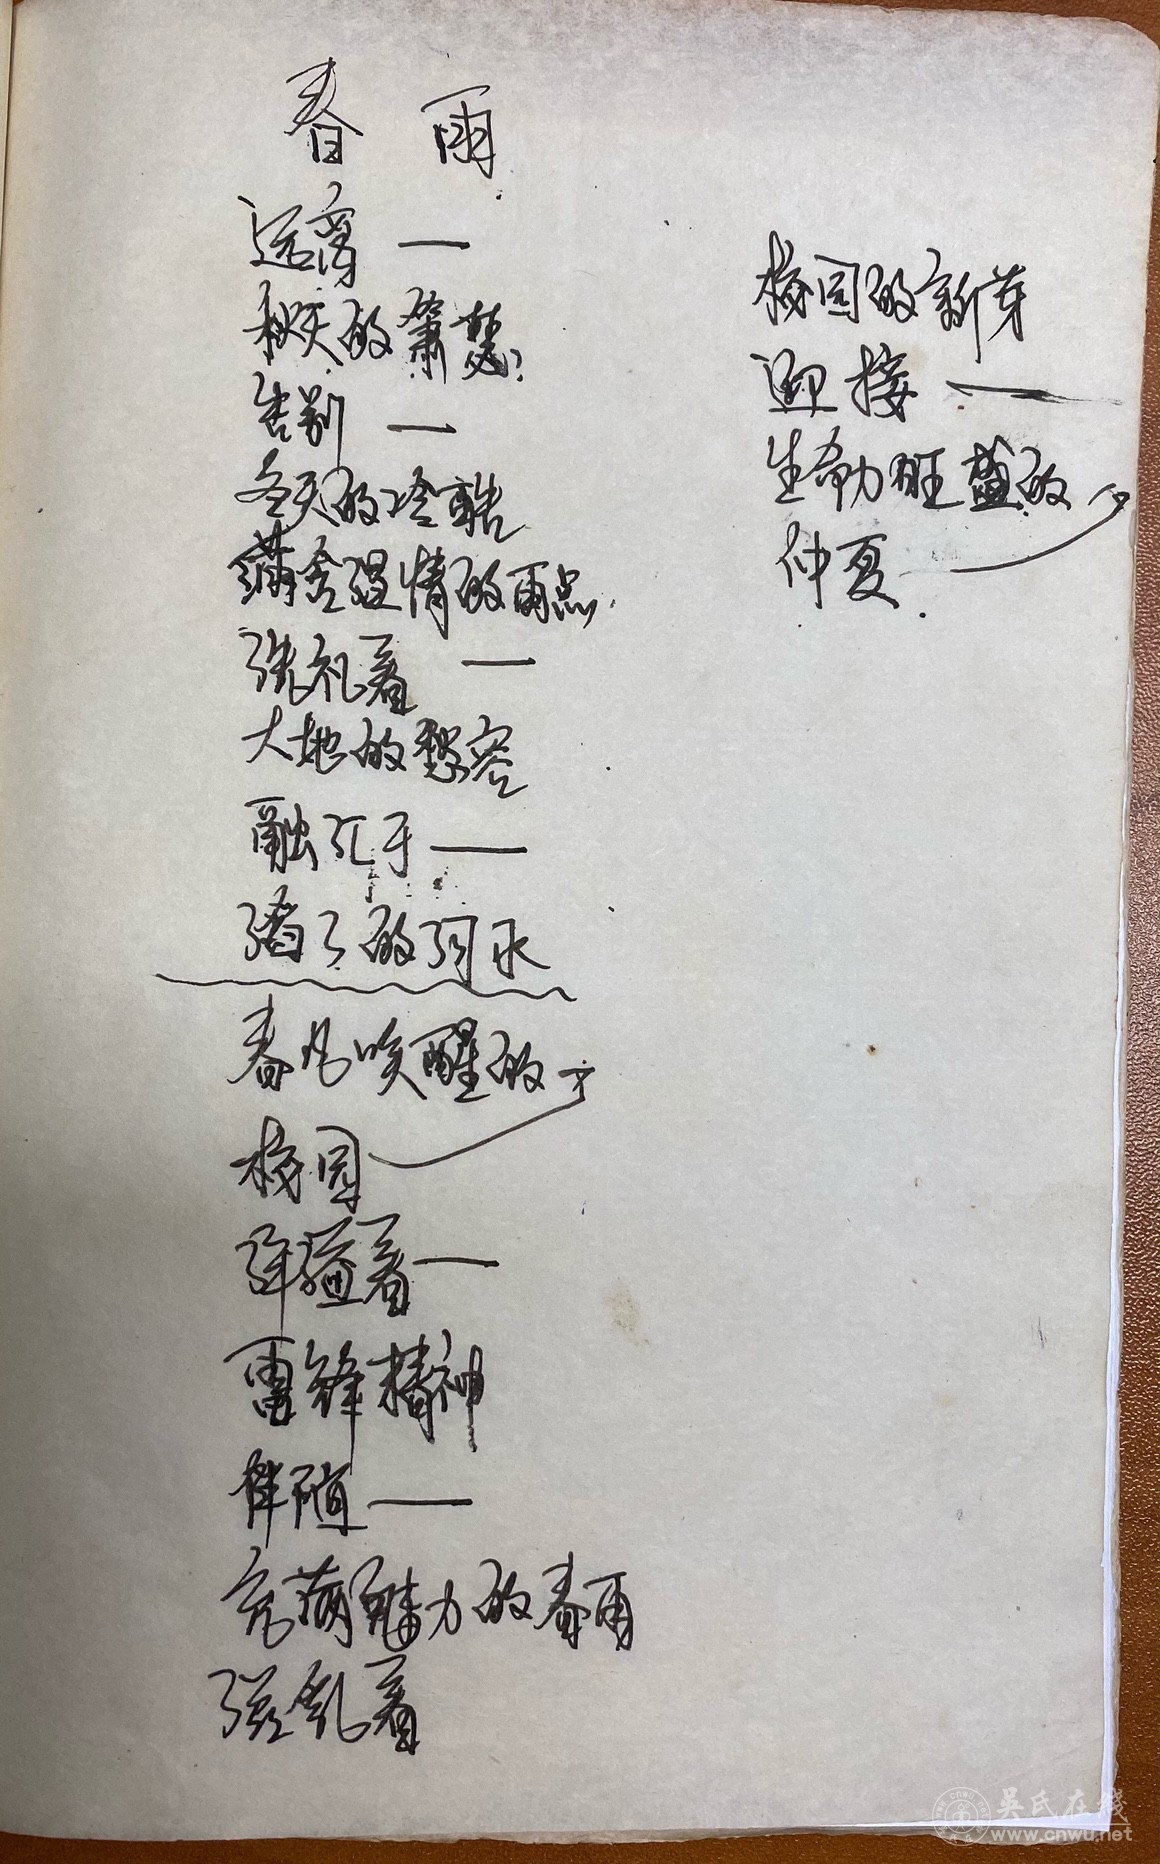 春雨
远离—
秋天的萧瑟
告别—
冬天的冷酷
满含温情的雨点
洗礼着—
大地的愁容
融汇于—
潺潺的河水
春风唤醒的
校园
洋溢着—
雷锋精神
伴随—
充满魅力的春雨
滋乳着
校园的新芽
迎接—
生命力旺盛的
仲夏.
吴氏在线
www.cnwu.net